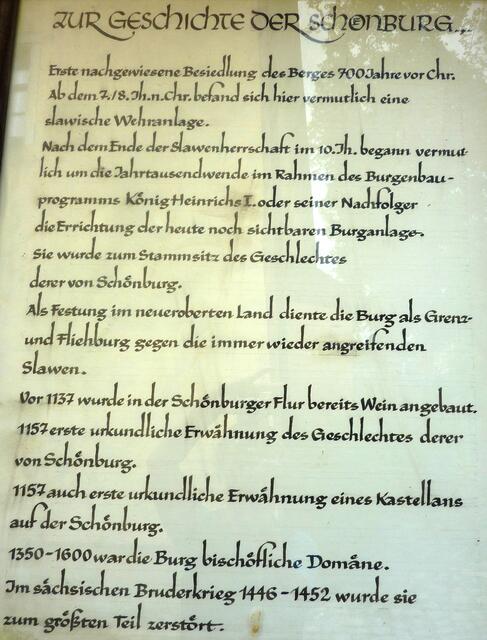 ZUR GESCHICHTE DER SCHÖNBURG...
Erste nachgewiesene Besiedlung des Berges 700 Jahre vor Chr.
Ab dem 7./8. Jh. n. Chr. befand sich hier vermutlich eine
slawische Wehranlage.
Nach dem Ende der Slawenherrschaft im 10. Jh. begann vermut-
lich um die Jahrtausendwende im Rahmen des Burgenbau-
programms König Heinrichs I. oder seiner Nachfolger
die Errichtung der heute noch sichtbaren Burganlage.
Sie wurde zum Stammsitz des Geschlechtes
derer von Schönburg.
Als Festung im neueroberten Land diente die Burg als Grenz-
und Fliehburg gegen die immer wieder angreifenden
Slawen.
Vor 1137 wurde in der Schönburger Flur bereits Wein angebaut.
1157 erste urkundliche Erwähnung des Geschlechtes derer
von Schönburg.
1157 auch erste urkundliche Erwähnung eines Kastellans
auf der Schönburg.
1350-1600 war die Burg bischöfliche Domäne.
Im sächsischen Bruderkrieg 1446-1452 wurde sie
zum größten Teil zerstört.